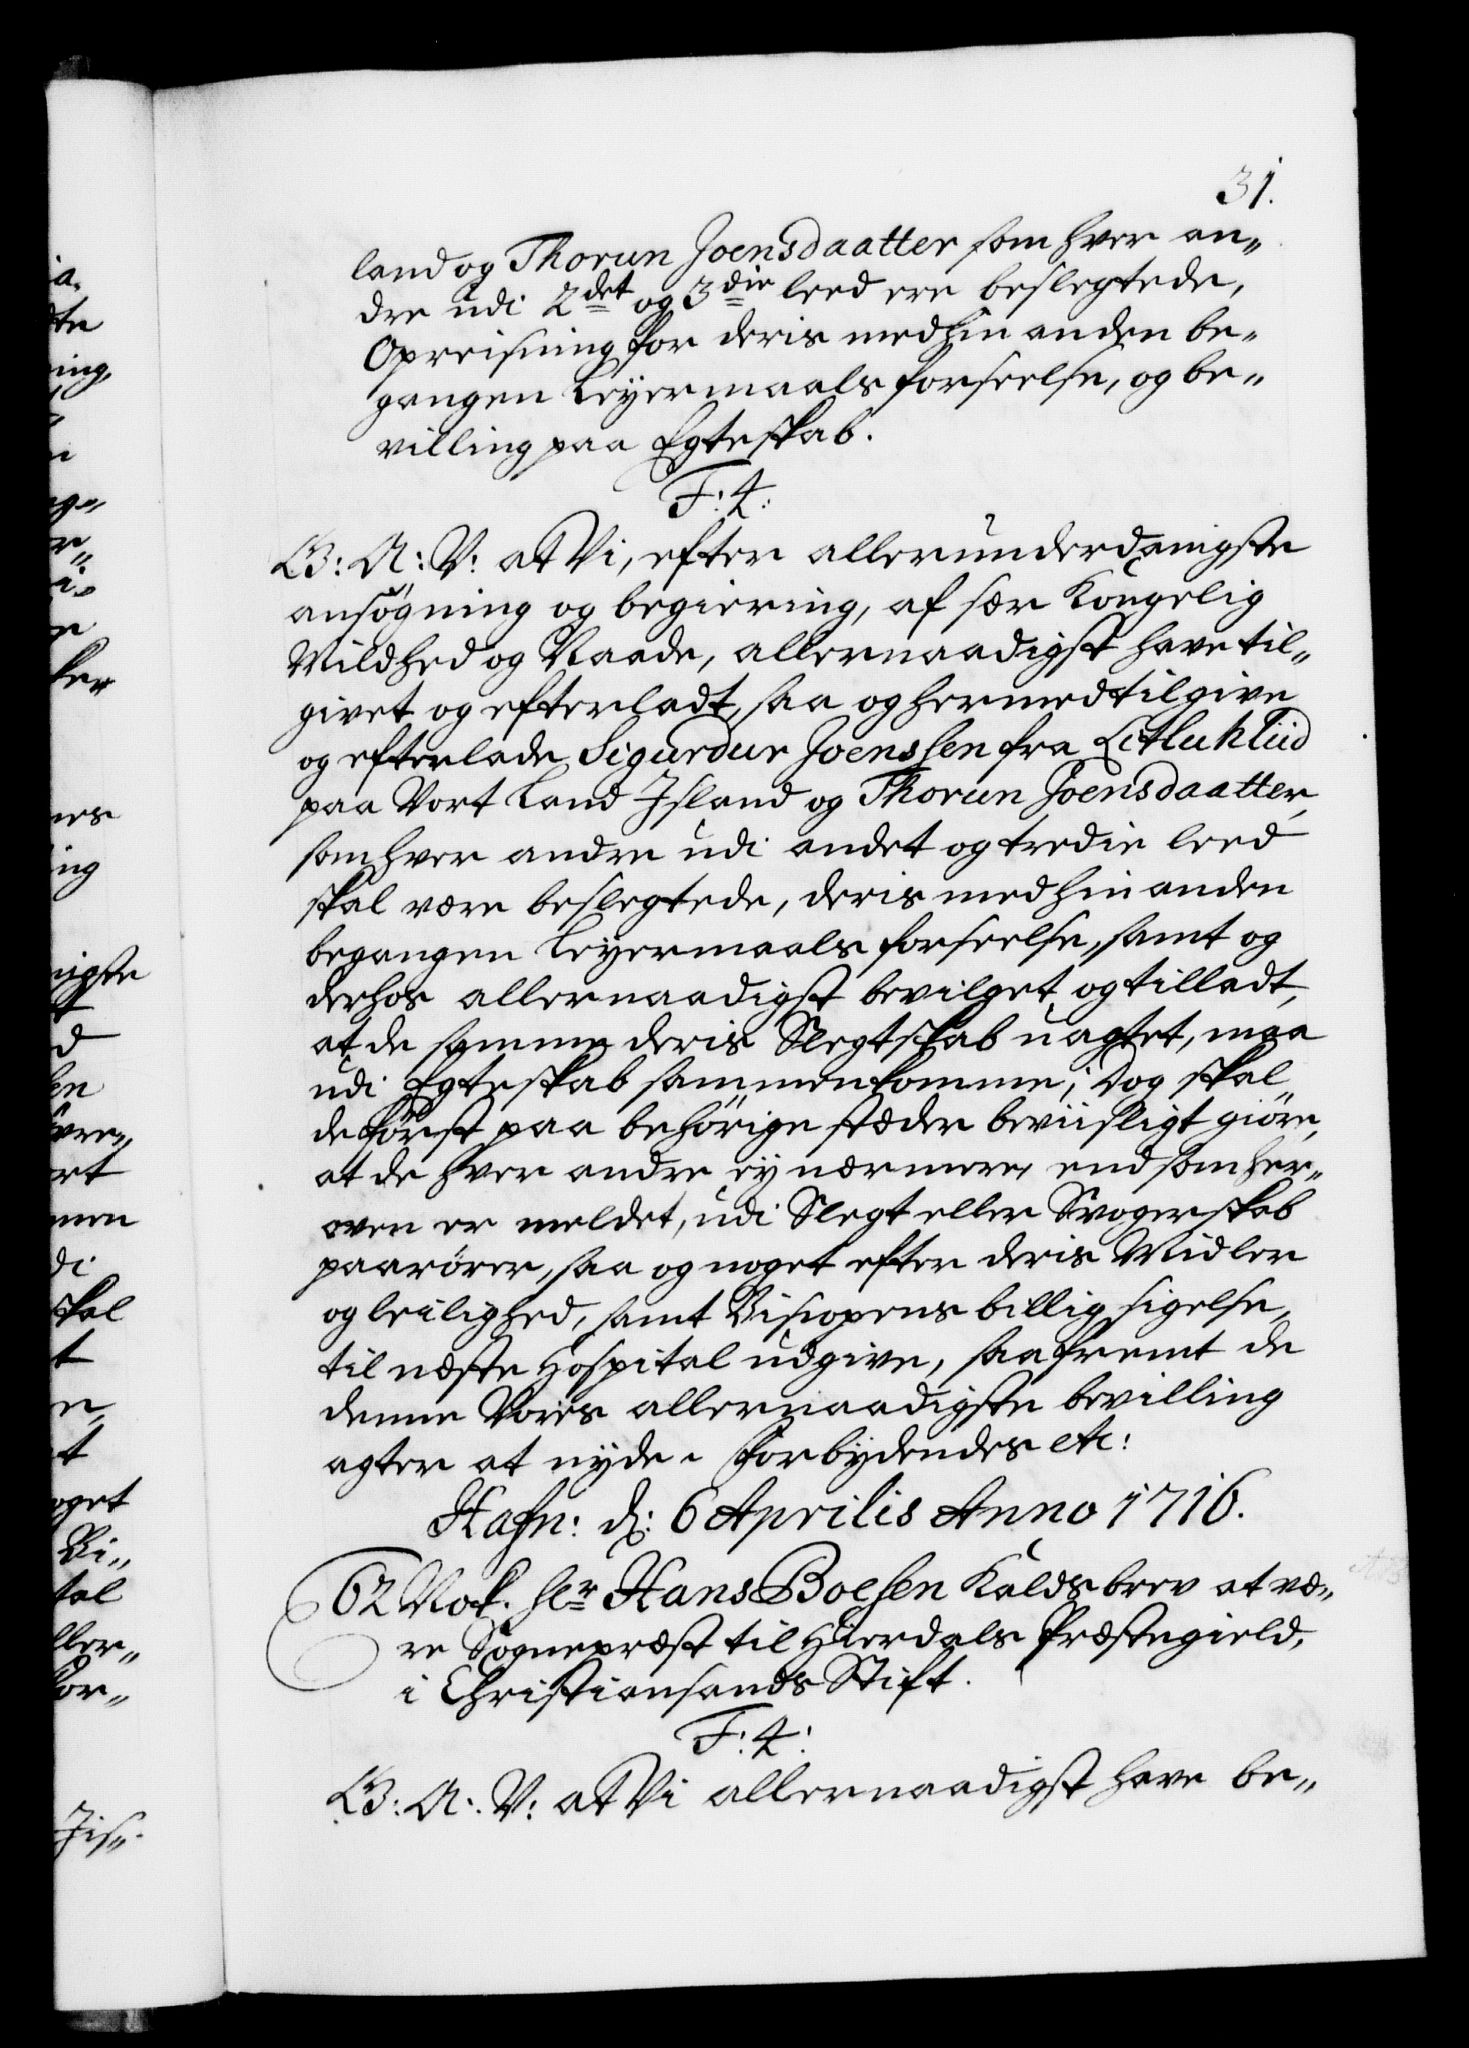 31.
land og Thorun Joensdaatter som hver an„
dre udi 2det og 3die leed ere beslegtede,
Opreisning for deris med hin anden be„
gangen Leyermaals forseelse, og be„
villing paa Egteskab.
F: 4:
G: A: V: at Vi, efter allerunderdanigste
ansögning og begiering, af sær Kongelig
Mildhed og Naade, allernaadigst have til„
givet og efterladt, saa og hermed tilgive
og efterlade Sigurdur Joenssen fra Litluhliid
paa Vort Land Island og Thorun Joensdaatter,
som hver andre udi andet og tredie leed
skal være beslegtede, deris med hin anden
begangen Leyermaals forseelse, samt og
derhos allernaadigst bevilget og tilladt,
at de samme deris Slegtskab uagtet, maa
udi Egteskab sammenkomme; Dog skal
de först paa behörige stæder beviisligt giöre,
at de hver andre ey nærmere, end som her„
oven er meldet, udi Slegt eller Svogerskab
paarörer, saa og noget efter deris Midler
og leilighed, samt Biscopens billig sigelse,
til næste Hospital udgive, saafremt de
denne Vores allernaadigste bevilling
agter at nyde. Forbydendes etc:
Hafn: d: 6 Aprilis Anno 1716.
62 Nok. Hr Hans Boesen Kalds brev at væ„
re Sognepræst til Hierdals Præstegield,
i Christiansands Stift.
F: 4:
G: A: V: at Vi allernaadigst have be„